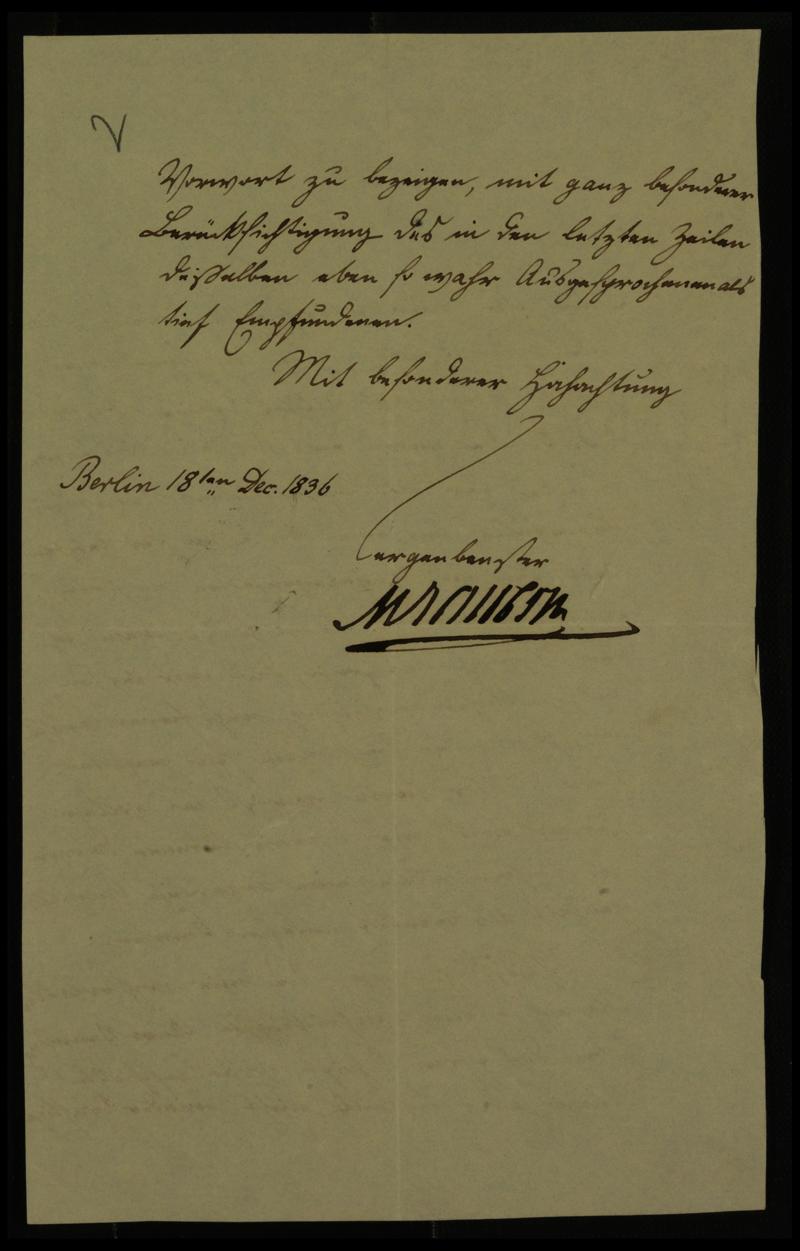 Vorwort zu bezeigen, mit ganz besonderer
Berücksichtigung des in den letzten Zeilen
desselben eben so wahr Ausgesprochenen als
tief Empfundenen.
Mit besonderer Hochachtung
Berlin 18ten Dec. 1836
ergenbenster